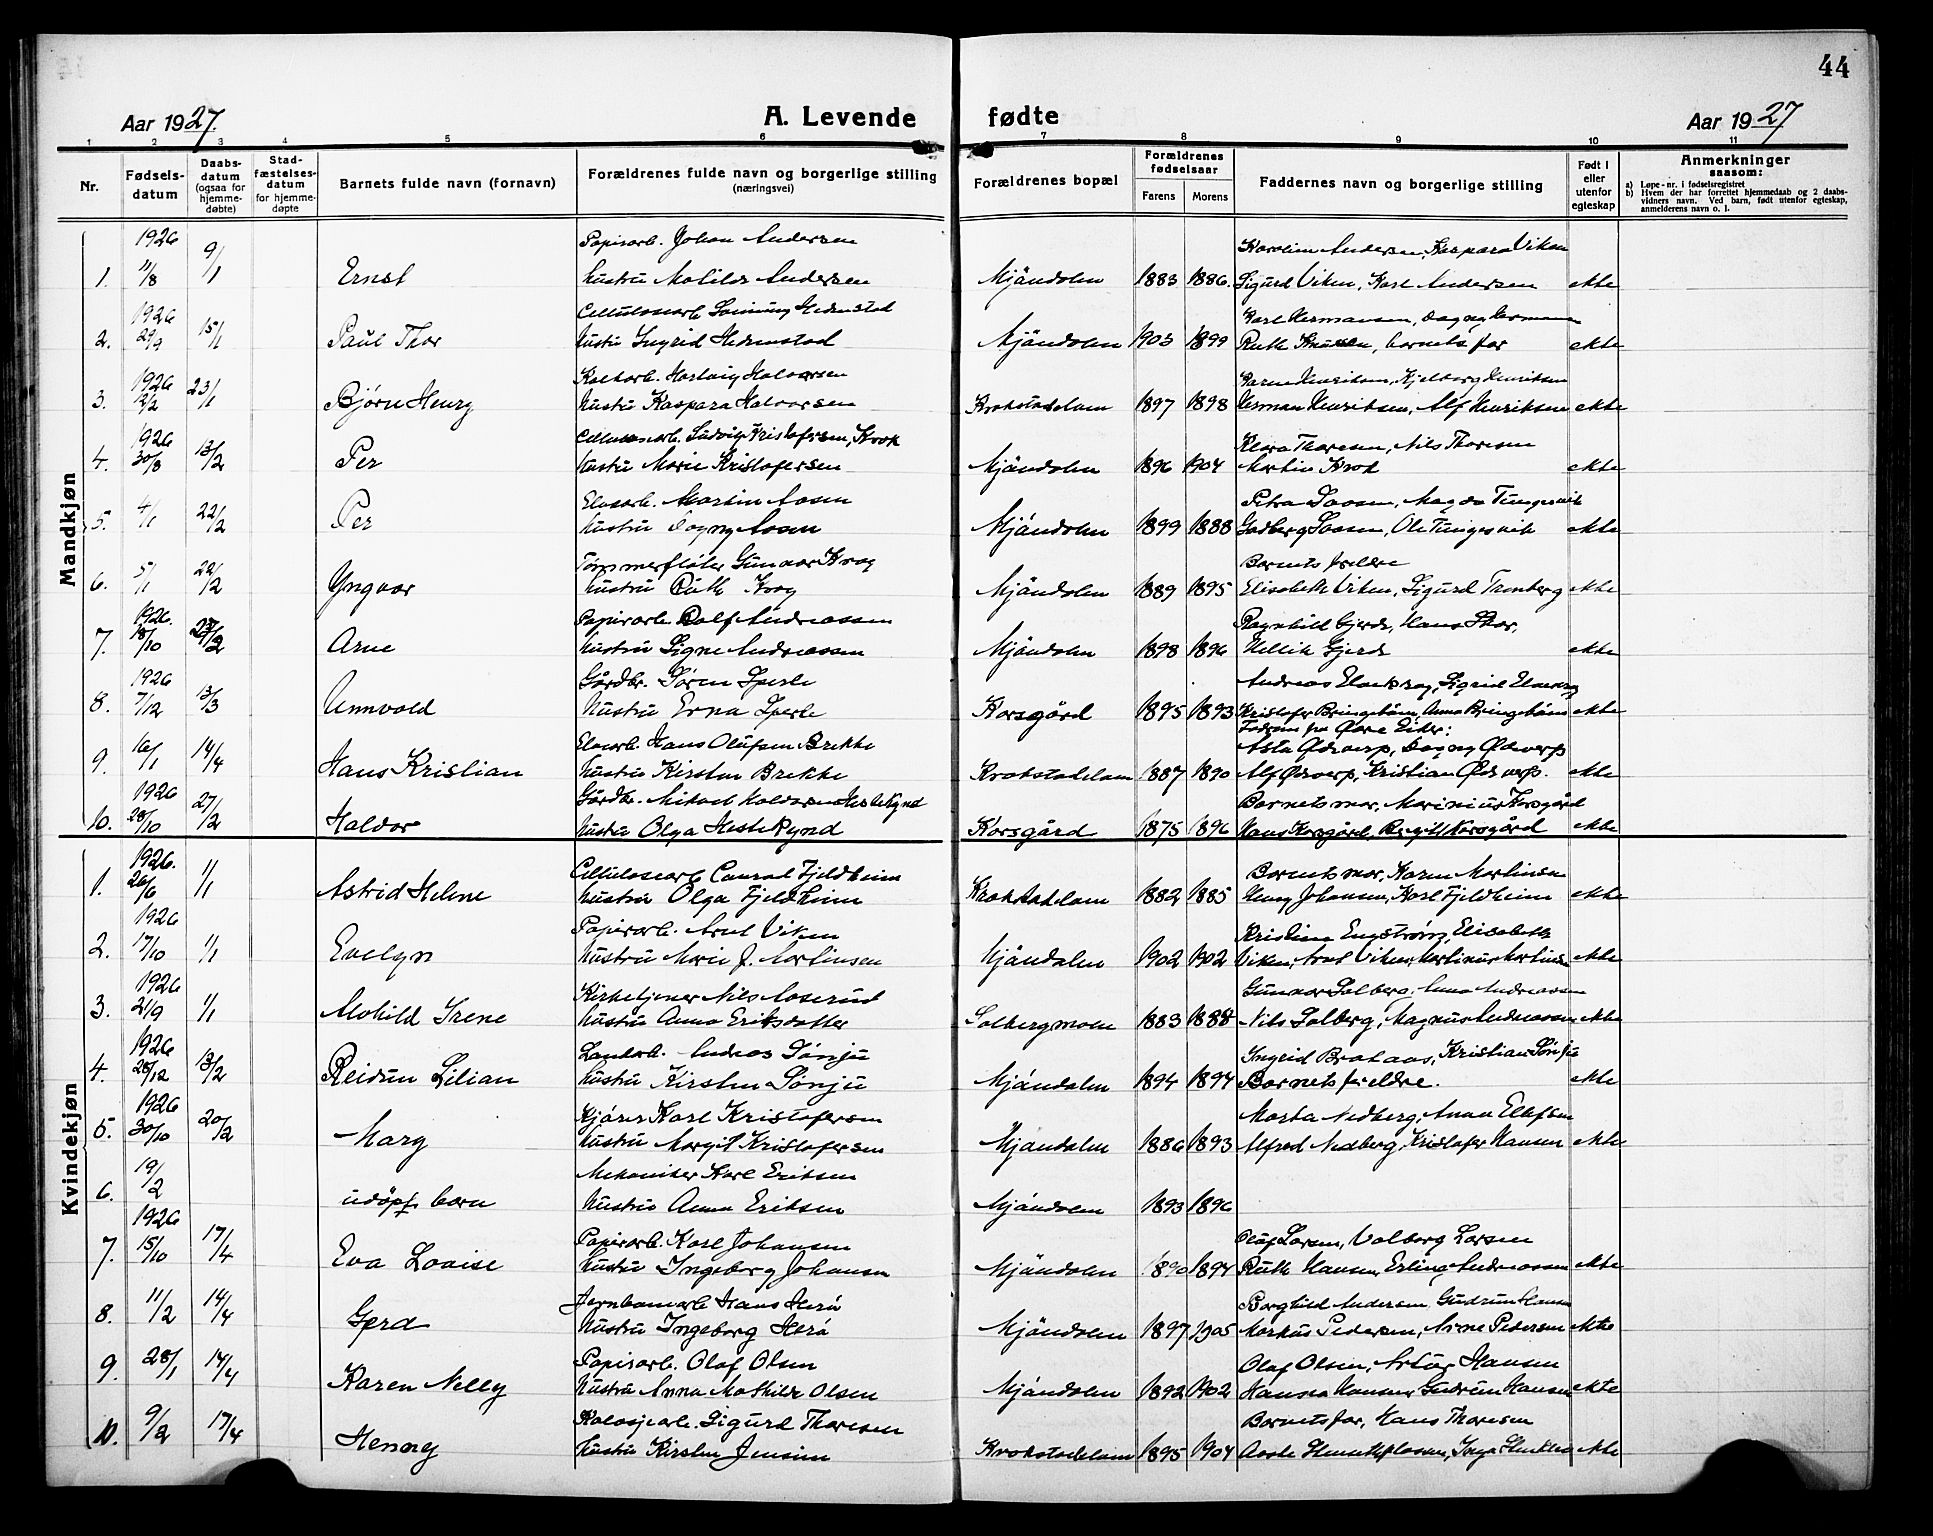 44
Aar 1927.
A. Levende fødte
Aar 1927
1 2 3 4 5 6 7 8 9 10 11
Nr.
Fødsels-
datum
Daabs-
datum
(ogsaa for
hjemme-
døbte)
Stad-
fæstelses-
datum
for hjemme-
døpte
Barnets fulde navn (fornavn)
Forældrenes fulde navn og borgerlige stilling
(næringsvei)
Forældrenes bopæl
Forældrenes
fødselsaar
Farens Morens
Faddernes navn og borgerlige stilling
Født i
eller
utenfor
egteskap
Anmerkninger
saasom:
a) Løpe-nr. i fødselsregistret
b) Hvem der har forrettet hjemmedaab og 2 daabs-
vidners navn. Ved barn, født utenfor egteskap,
anmelderens navn o. l.
Mandkjøn
1926 Papirarb. Johan Andersen Karoline Andersen, Kaspara Viken
1. 11/8 9/1 Ernst Hustru Matilde Andersen Mjøndalen 1883 1886. Sigurd Viken, Karl Andersen ekte
1926 Cellulosearb. Hedenstad Karl Hermansen, Dagny Hermansen
2. 29/9 15/1 Paul Thor Hustru Ingrid Hedenstad Mjøndalen 1903 1899 Ruth Knudsen, barnets far ekte
1926 Hartvig Halvorsen Karen Henriksen, Hjelborg Henriksen
3. 12/2 23/1 Bjørn Henry Hustru Kaspara Halvorsen Krokstadelven 1897 1898 Herman Henriksen, Alf Henriksen ekte
1926 Cellulosearb. Ludvig Kristofersen, Krok Klara Thoresen, Nils Thoresen
4. 30/8 13/2 Per Hustru Marie Kristofersen Mjøndalen 1896 1904 Martin Krok ekte
5. 4/1 22/2 Per Elvearb. Martin Aasen Petra Aasen, Magda Tungesvik
Hustru Dagny Aasen Mjøndalen 1899 1888 Ole Tungesvik ekte
6. 5/1 22/2 Yngvar Tømmerfløter Gunnar Krog Barnets foreldre
Hustru Ruth Krog Mjøndalen 1889 1895 Elisabeth Viken, Sigurd Tranberg ekte
1926. Papirarb. Rolf Andreassen Ragnhild Gjerde, Hans
7. 18/10 27/2 Arne Hustru Signe Andreassen Mjøndalen 1898 1896 Hellik Gjerde ekte
1926 Gårdbr. Søren Sperle Andreas, Sigrid
8. 7/12 13/3 Annvald Hustru Erna Sperle Korsgård 1895 1893 Kristofer Bringebøen, Anna Bringebøen ekte
Fadrene fra Øvre Eiker:
9. 16/1 14/4 Hans Kristian Elvearb. Hans Olufsen Brekke Asta Ødeverp, Dagny Ødeverp
Hustru Kirsten Brekke Krokstadelven 1887 1890 Alf Ødeverp, Kristian Ødeverp. ekte
1926 Gårdbr. Mikael Haldorsen Hestekynd Barnets mor, Marinius Korsgård
10. 28/10 27/2 Haldor Hustru Olga Hestekynd Korsgård 1875 1896 Hans Korsgård, Birgit Korsgård ekte
Kvindekjøn
1926. Cellulosearb. Conrad Fjeldheim Barnets mor, Karen Martinsen
1. 26/6 1/1 Astrid Helene Hustru Olga Fjeldheim Krokstadelven 1882 1885 Henry Johansen, Karl Fjeldheim ekte
1926 Papirarb. Arnt Viken Kristine Engstrøm, Elisabeth
2. 17/10 1/1 Evelyn Hustru Marie J. Martinsen Mjøndalen 1902 1902 Viken, Arnt Viken, Martinius Martinsen ekte
1926 Kirketjener Nils Aaserud Gunnar Solberg, Anna Andreassen
3. 21/9 1/1 Alvhild Irene Hustru Anna Eriksdatter Solbergmoen 1883 1888 Nils Solberg, Magnus Andreassen ekte
1926 Andreas Sønju Ingrid Brataas, Kristian Sønju
4. 28/12 13/2 Reidun Lilian Hustru Kirsten Sønju Mjøndalen 1894 1894 Barnets foreldre. ekte
1926 Kjører Karl Kristofersen Marta Nedberg, Anna Ellefsen
5. 30/10 20/2 Mary Hustru Margit Kristofersen Mjøndalen 1886 1893 Alfred Nedberg, Kristofer Hansen ekte
6. 19/2 udøpt barn Mekaniker Karl Eriksen
Hustru Anna Eriksen Mjøndalen 1893 1896
1926 Papirarb. Karl Johansen Oluf Larsen, Valborg Larsen
7. 15/10 17/4 Eva Lovise Hustru Ingeborg Johansen Mjøndalen 1890 1894 Ruth Hansen, Erling Andreassen ekte
8. 11/2 14/4 Gerd Jernbanearb. Hans Herø Borghild Andersen, Gudrun Hansen
Hustru Ingeborg Herø Mjøndalen 1897 1905 Markus Pedersen, Arne Pedersen ekte
9. 28/1 14/4 Karen Nelly Papirarb. Olaf Olsen Olaf Olsen, Artur Hansen
Hustru Anna Mathilde Olsen Mjøndalen 1892 1902 Hanna Hansen, Gudrun Hansen ekte
10. 9/2 17/4 Henny Sigurd Thoresen Barnets far, Hans Thoresen
Hustru Kirsten Jensine Krokstadelven 1895 1904 ekte